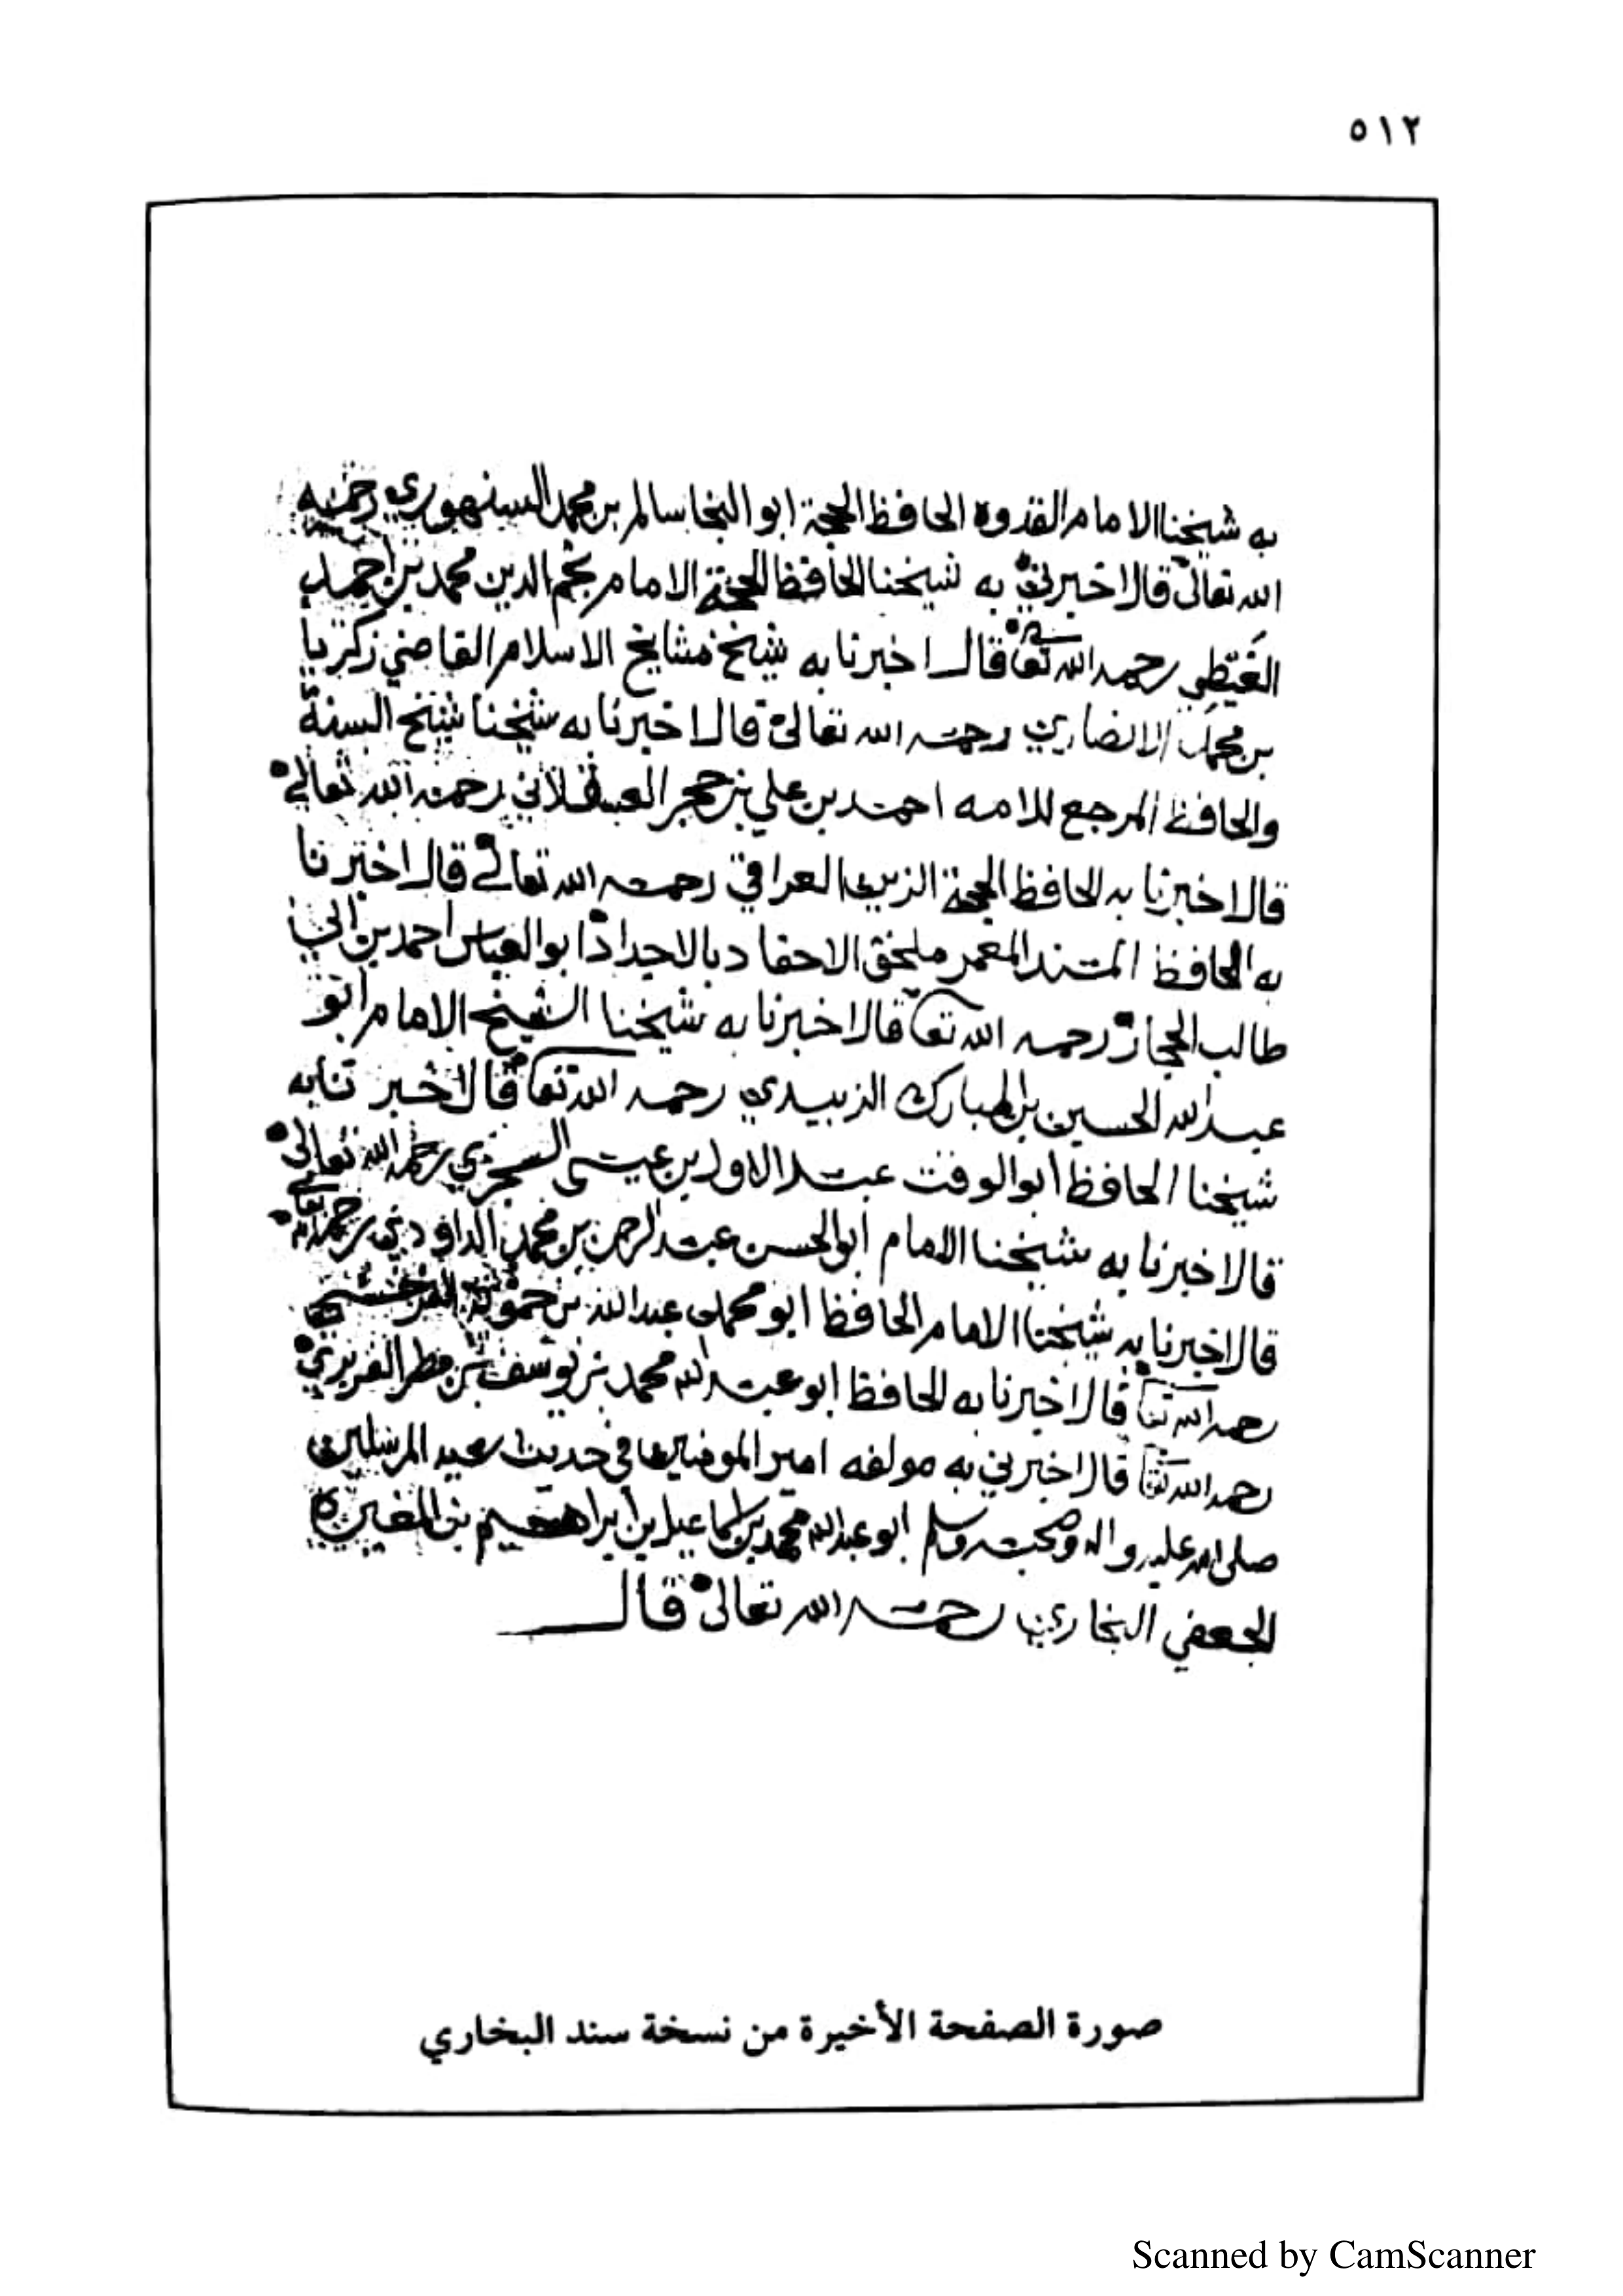 ٥١٢
به شيخنا الامام القدوة الحافظ الحجة ابو النجا سالم بن محمد السنهوري رحمه
الله تعالى قال اخبرني به شيخنا الحافظ الحجة الامام نجم الدين محمد بن احمد
الغيطي رحمه الله تعا قال اخبرنا به شيخ مشايخ الاسلام القاضي زكريا
بن محمد الانصاري رحمه الله تعالى قال اخبرنا به شيخنا شيخ السنة
والحافظ المرجع للامه احمد بن علي بن حجر العسقلاني رحمه الله تعالى
قال اخبرنا به الحافظ الحجة الزين العراقي رحمه الله تعالى قال اخبرنا
به الحافظ المسند المعمر ملحق الاحفاد بالاجداد ابو العباس احمد بن ابي
طالب الحجار رحمه الله تعا قال اخبرنا به شيخنا الشيخ الامام ابو
عبد الله الحسين بن المبارك الزبيدي رحمه الله تعا قال اخبرنا به
شيخنا الحافظ ابو الوقت عبد الاول بن عيسى السجزي رحمه الله تعالى
قال اخبرنا به شيخنا الامام ابو الحسن عبد الرحمن بن محمد الداودي رحمه الله تعالى
قال اخبرنا به شيخنا الامام الحافظ ابو محمد عبد الله بن حمويه السرخسي
رحمه الله تعا قال اخبرنا به الحافظ ابو عبد الله محمد بن يوسف بن مطر الفربري
رحمه الله تعا قال اخبرني به مولفه امير المومنين في حديث سيد المرسلين
صلى الله عليه واله وصحبه وسلم ابو عبد الله محمد بن اسماعيل بن ابراهيم بن المغيرة
الجعفي البخاري رحمه الله تعالى قال
صورة الصفحة الأخيرة من نسخة سند البخاري
Scanned by CamScanner